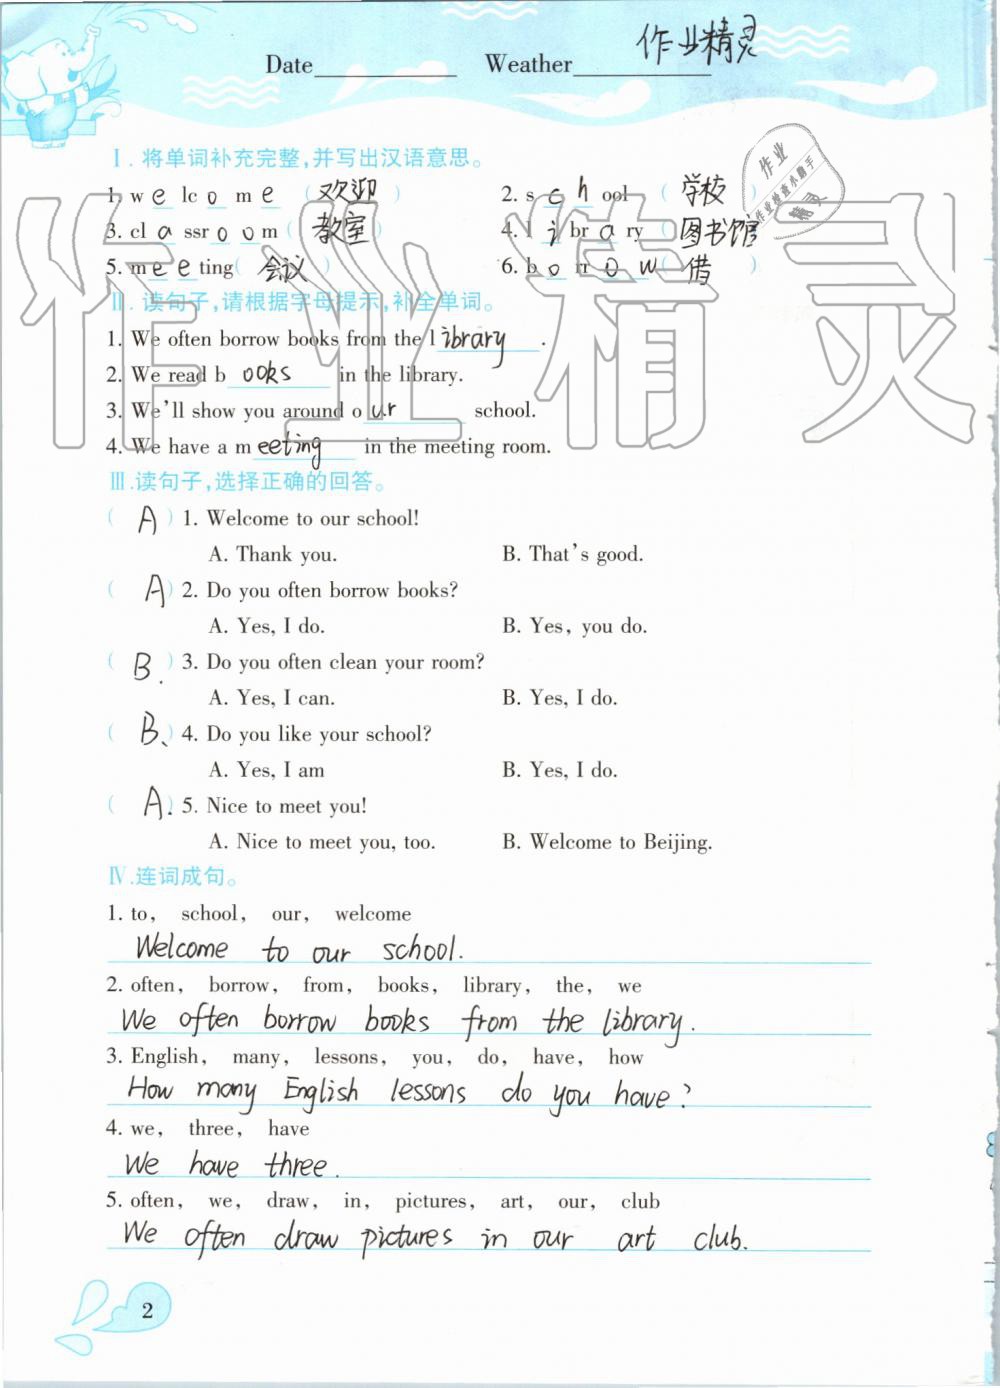 作业精灵
Date________ Weather________
作业
作业检查小助手
精灵
Ⅰ. 将单词补充完整,并写出汉语意思。
1. w e lc o m e ( 欢迎 ) 2. s c h ool ( 学校 )
3. cl a ssr o o m ( 教室 ) 4. l i br a ry ( 图书馆 )
5. m e e ting ( 会议 ) 6. b o rr o w ( 借 )
作业精灵
Ⅱ. 读句子,请根据字母提示,补全单词。
1. We often borrow books from the library.
2. We read books in the library.
3. We'll show you around our school.
4. We have a meeting in the meeting room.
Ⅲ.读句子,选择正确的回答。
( A ) 1. Welcome to our school!
A. Thank you. B. That's good.
( A ) 2. Do you often borrow books?
A. Yes, I do. B. Yes, you do.
( B. ) 3. Do you often clean your room?
A. Yes, I can. B. Yes, I do.
( B、) 4. Do you like your school?
A. Yes, I am B. Yes, I do.
( A. ) 5. Nice to meet you!
A. Nice to meet you, too. B. Welcome to Beijing.
Ⅳ.连词成句。
1. to, school, our, welcome
Welcome to our school.
2. often, borrow, from, books, library, the, we
We often borrow books from the library.
3. English, many, lessons, you, do, have, how
How many English lessons do you have?
4. we, three, have
We have three.
5. often, we, draw, in, pictures, art, our, club
We often draw pictures in our art club.
2